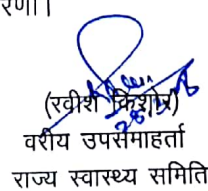 रणा।
(रवीश किशोर)
वरीय उपसमाहर्ता
राज्य स्वास्थ्य समिति